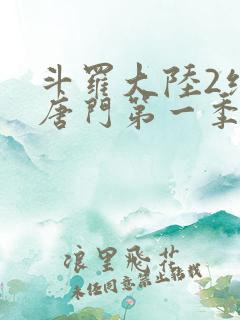 斗羅大陸2
唐門第一季
浪里飛花
未經同意禁止轉載